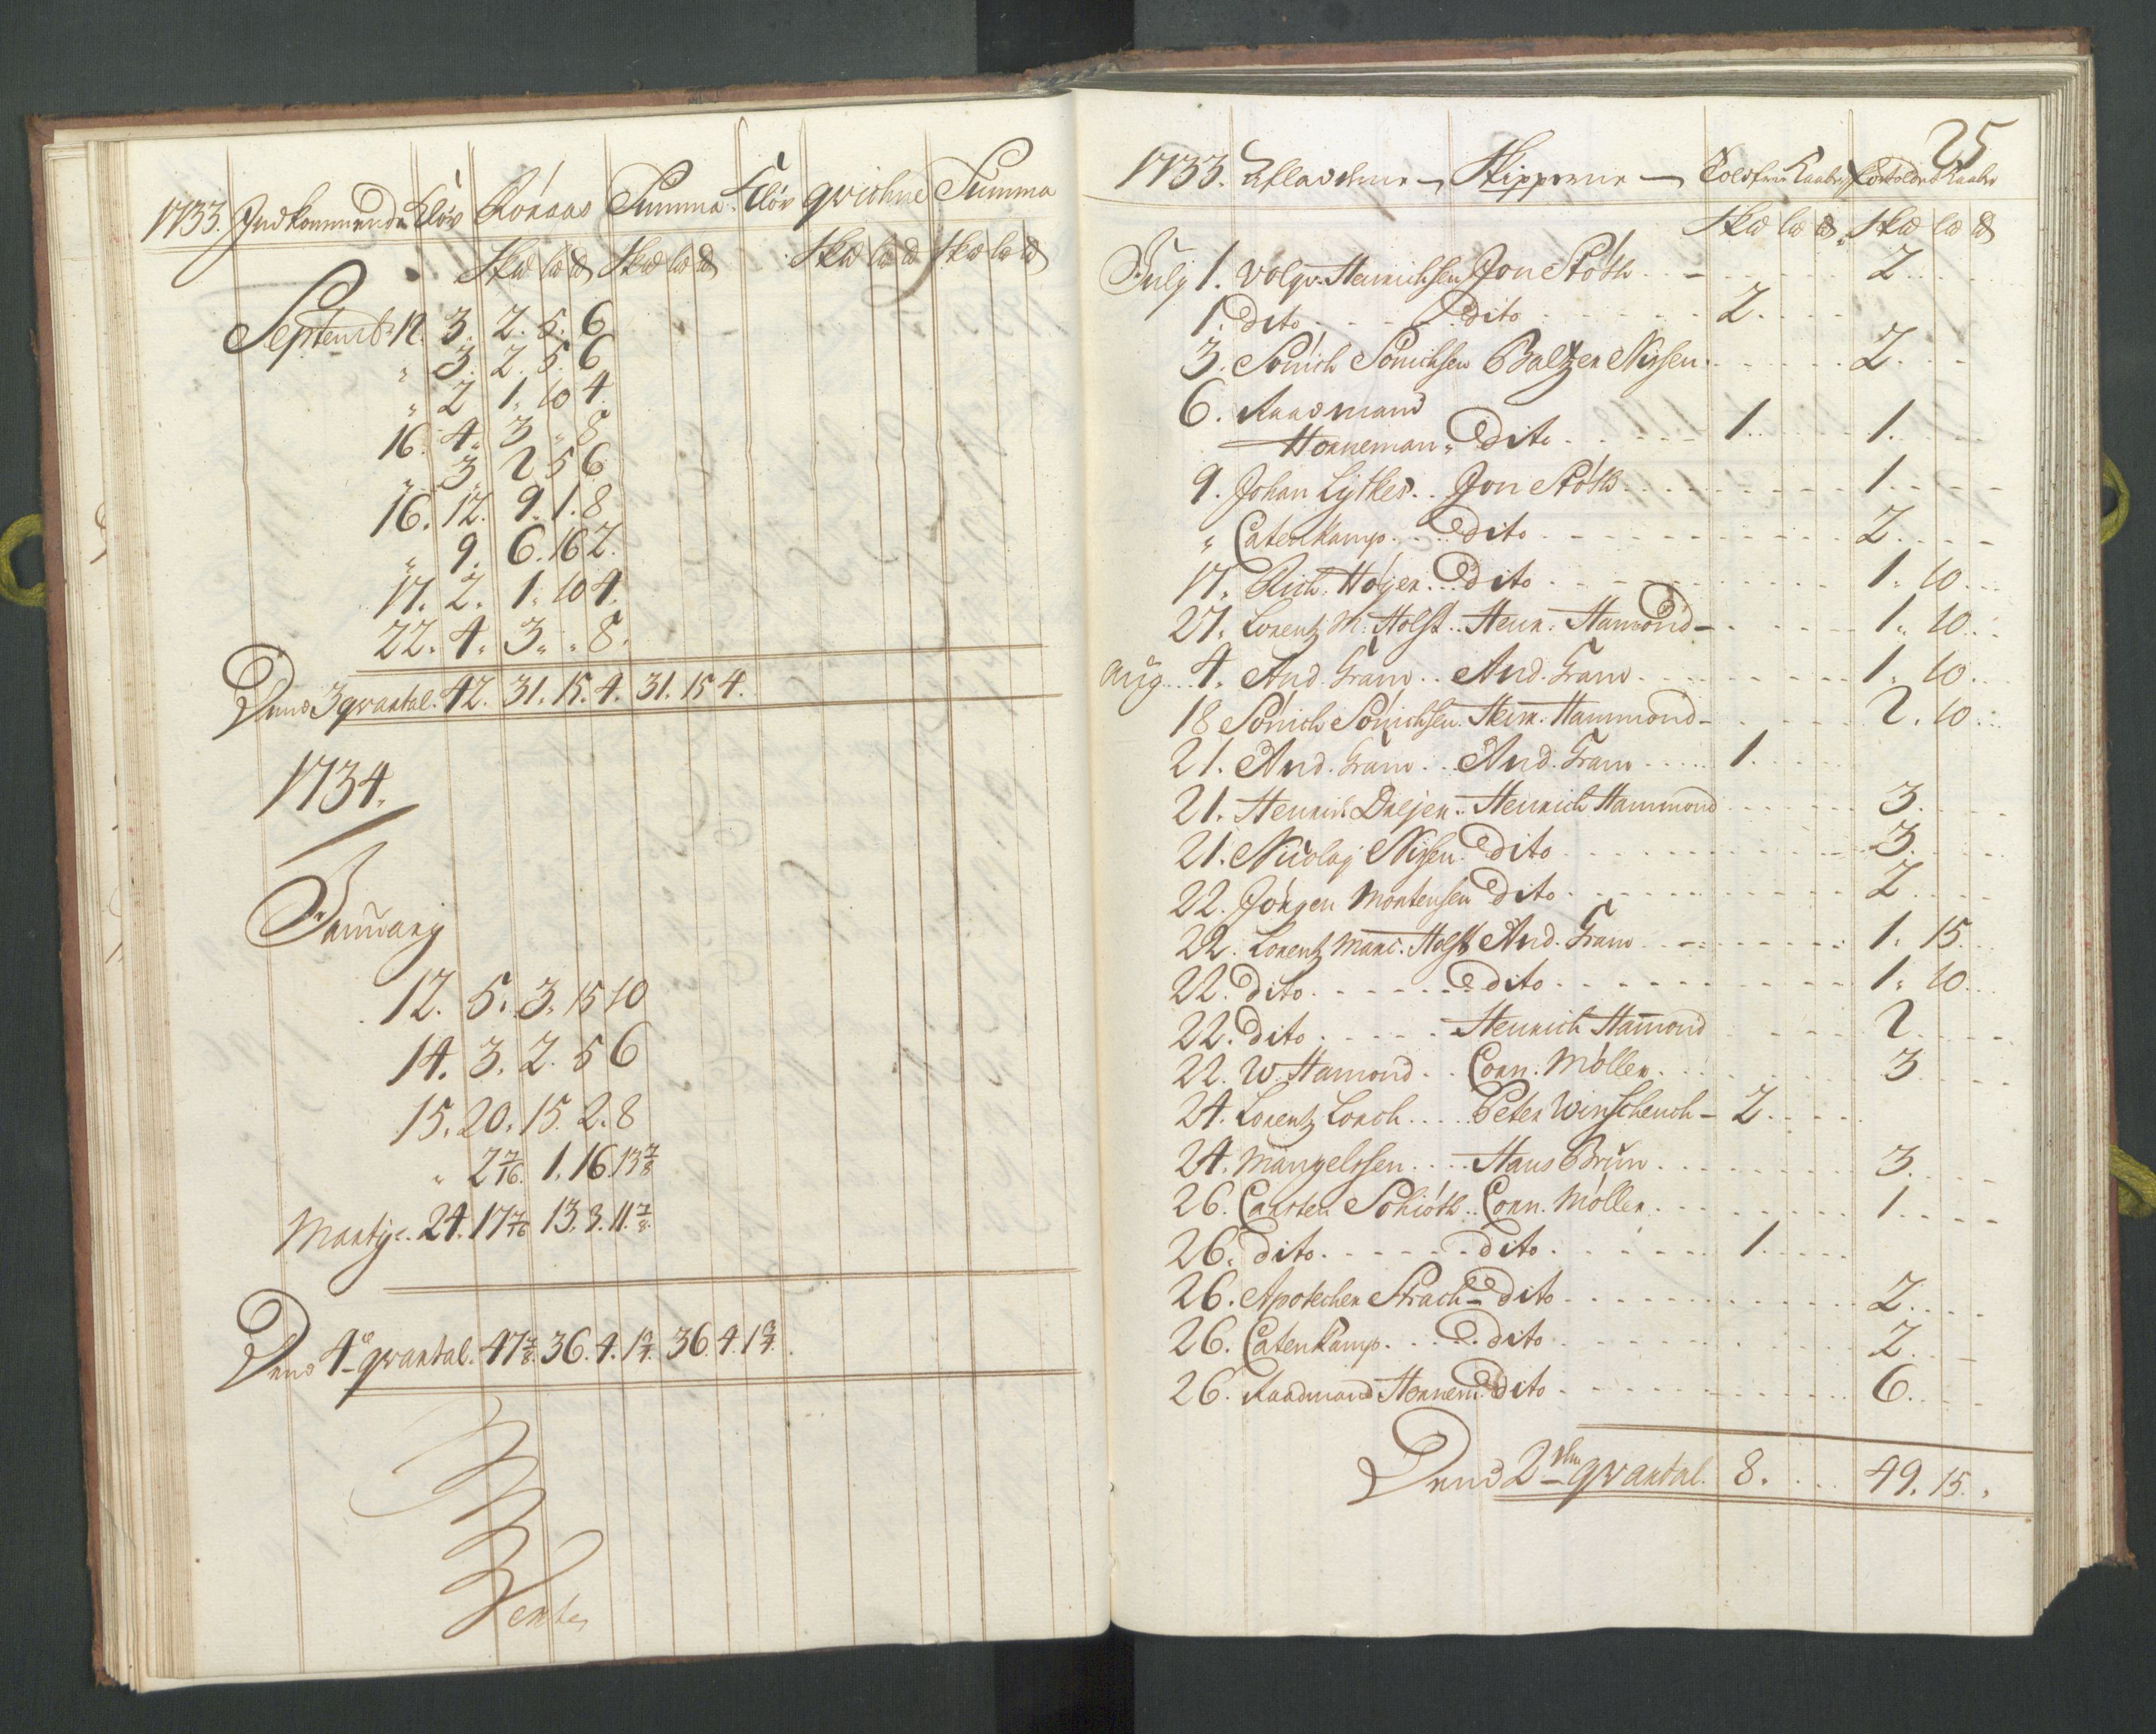 1733. Indkommende Kløv Røraas Summa Kløv qwichne Summa
Sk℔ l℔ ℔ Sk℔ l℔ ℔ Sk℔ l℔ ℔ Sk℔ l℔ ℔
Septembr 12. 3. 2. 5. 6
" 3. 2. 5. 6
" 2 1. 10 4.
16. 4. 3 " 8
" 3. 2 5 6
16. 12. 9. 1. 8
" 9. 6. 16 2.
17. 2. 1. 10 4.
22. 4. 3. " 8.
Dend 3 qvartal. 42. 31. 15. 4. 31. 15 4.
1734.
January
12. 5. 3. 15 10
14. 3. 2. 5 6
15. 20. 15. 2. 8
" 2 7/16. 1. 16. 13 7/8
Martij. 24. 17 7/16 13. 3. 11. 7/8.
Dend 4de qvartal. 47 7/8. 36. 4. 1 3/4. 36. 4. 1 3/4.
Verte
25
1733. Afladerne Skipperne Toldfrie Kaaber Fortoldet Kaaber
Sk℔ l℔ ℔. Sk℔ l℔ ℔
July 1. Volqv. Heinrichsen Jon Stöth - 2
1. dito dito 2
3. Sönich Sönichsen Baltzer Nissen 2
6. Raadmand
Horneman " Dito 1. 1.
9. Johan Lytkes Jon Stöth 1
" Catenkamp dito 2
17. Rich. Høyer dito 1. 10
27. Lorentz M: Holst Henr: Hamond 1. 10
Aug. 4. And. Gram And. Gram 1. 10
18 Sönich Sönichsen Heinr. Hammond 2. 10
21. And. Gram And. Gram 1.
21. Henrich Dreyer Henrich Hammond 3.
21. Nicolay Nissen dito 3.
22. Jörgen Mortensen dito 2
22. Lorentz Mart: Holst And. Gram 1. 15
22. dito dito 1. 10
22. dito Henrich Hamond 2
22. W. Hamond Corn. Möller 3
24. Lorentz Lorch Peter Winschench 2
24. Mangelssen Hans Brun 3.
26. Carsten Schiöth Corn. Möller 1
26. dito dito 1
26. Apotecher Strach dito 2
26. Catenkamp dito 2.
26. Raadmand Hornem: dito 6.
Dend 2den qvartal. 8. 49. 15.